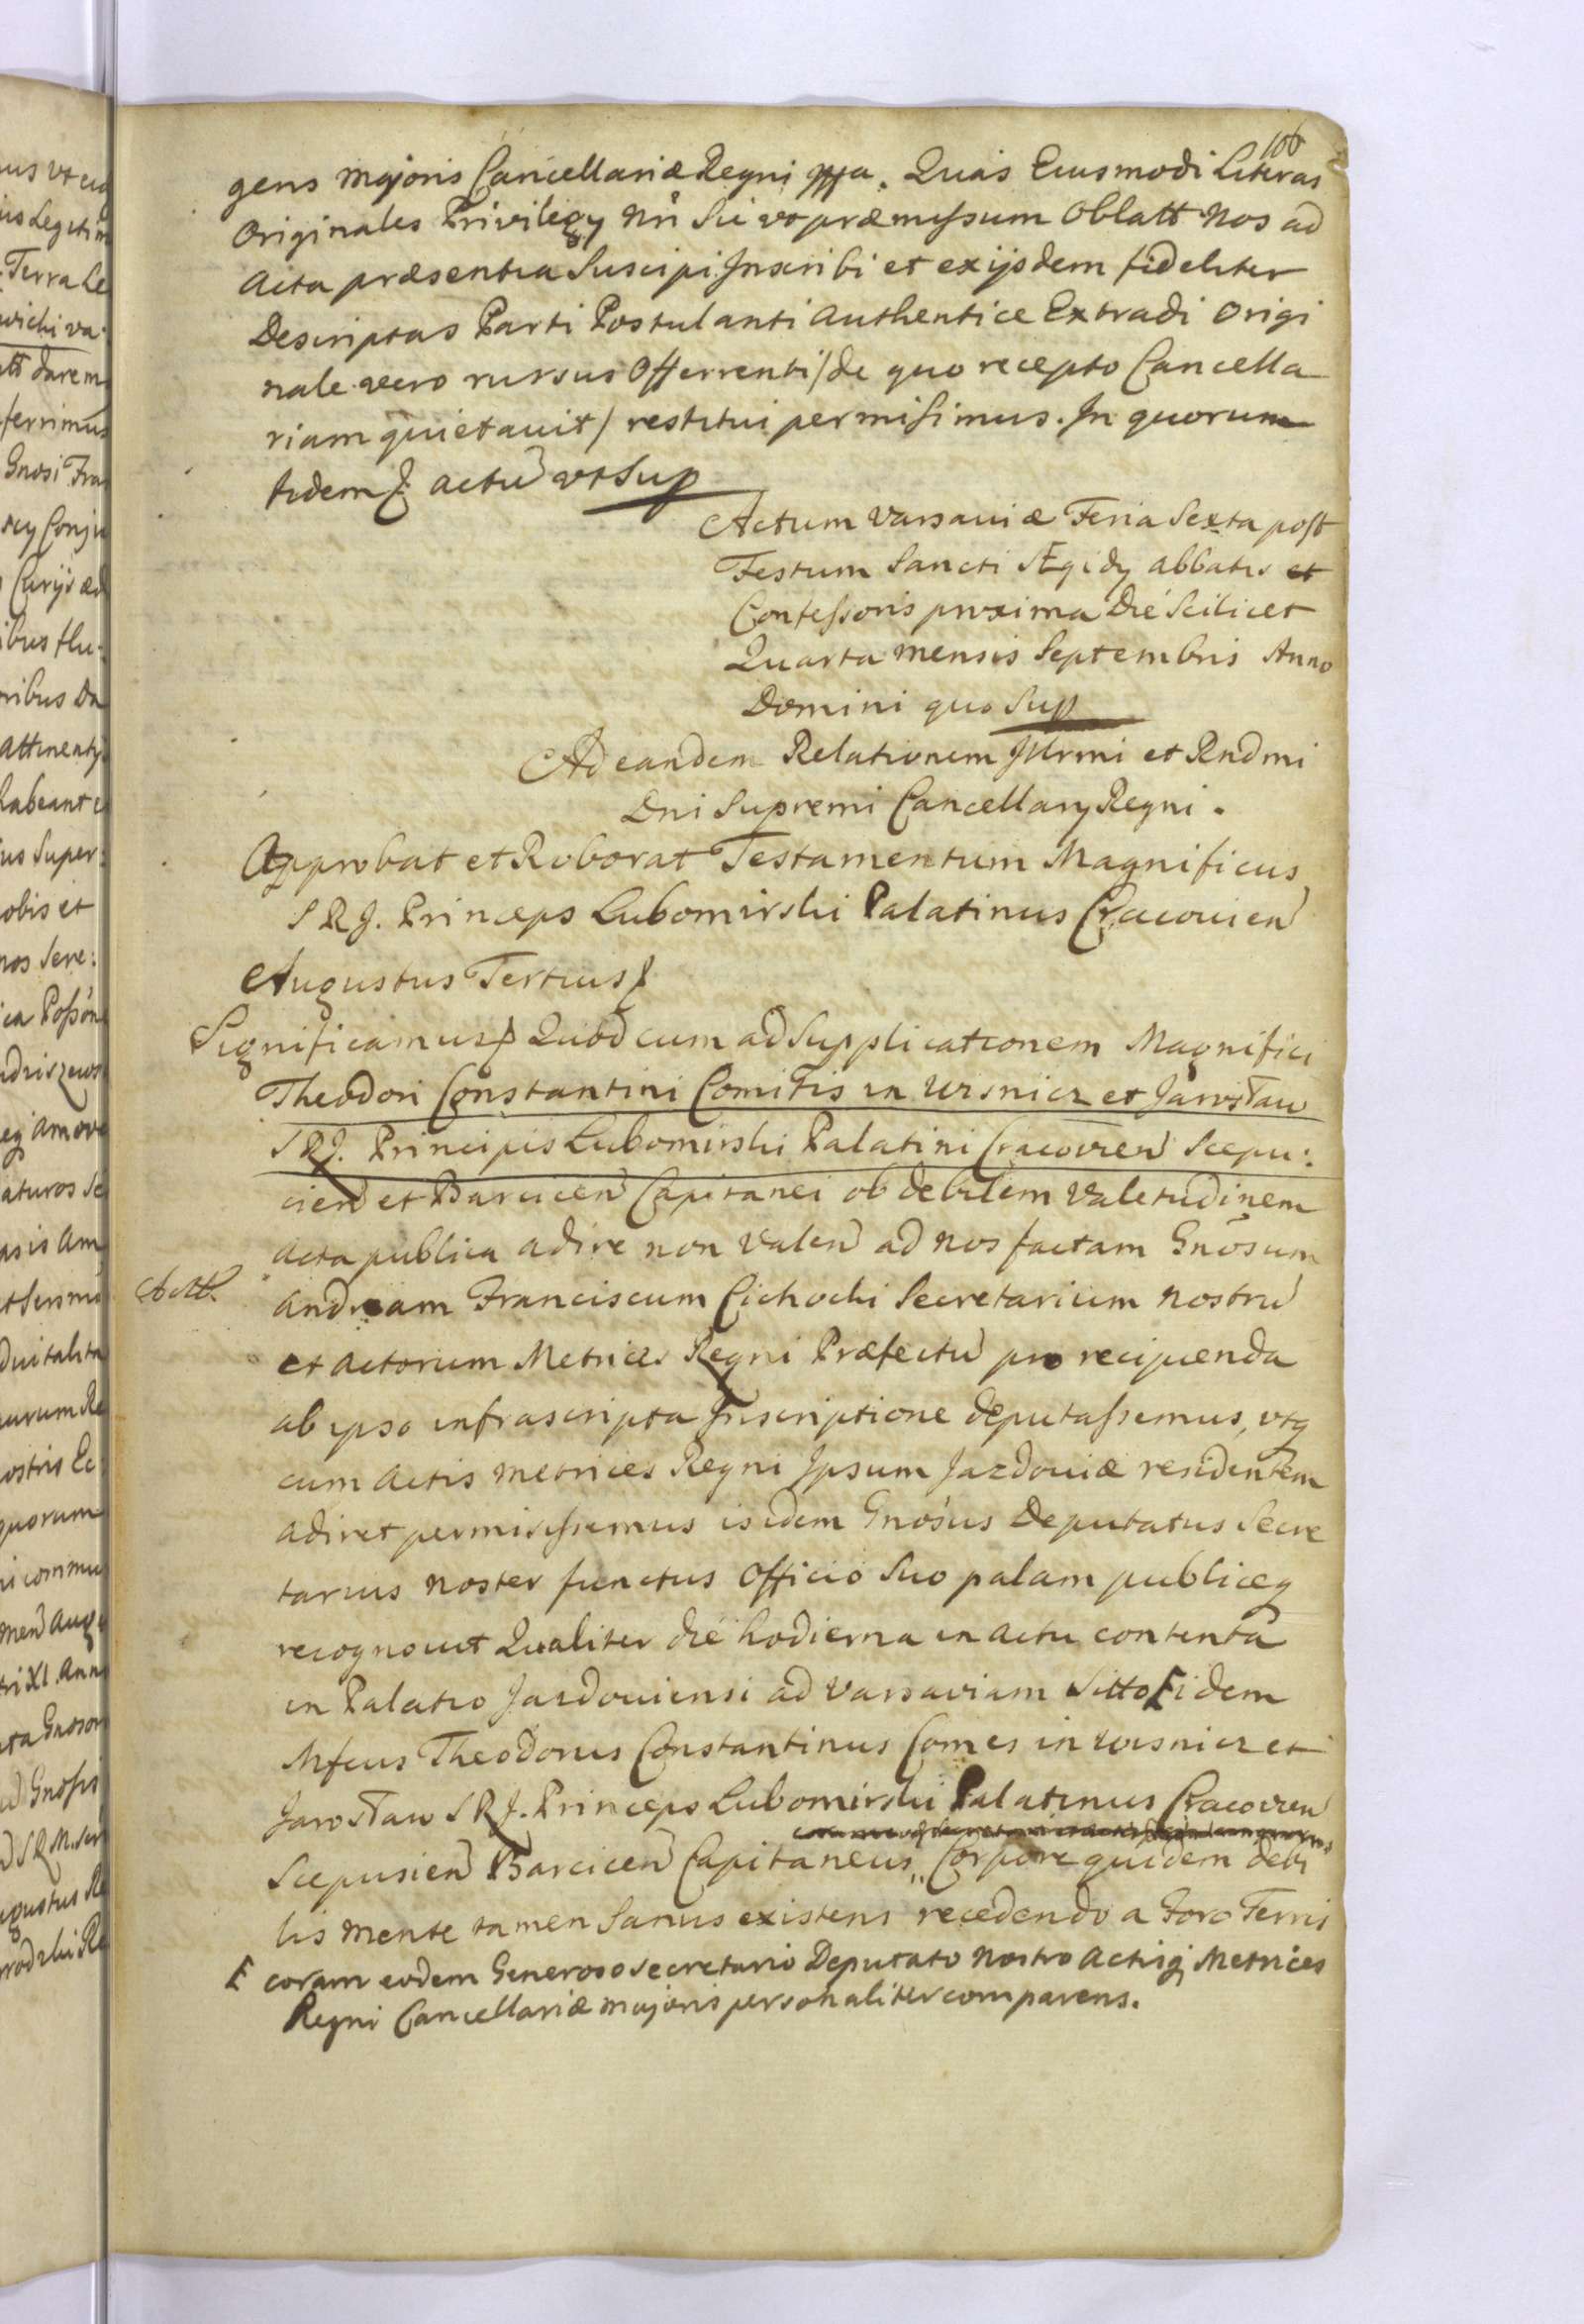 106
gens majoris Cancellariæ Regni mppa. Quas Eiusmodi Literas
Originales Privilegy Nri Sic vt præmissum Oblatt Nos ad
Acta præsentia Suscipi Inscribi et ex ijsdem fideliter
Descriptas Parti Postulanti Authentice Extradi Origi
nale vero rursus Offerrenti /de quo recepto Cancella
riam quietavit/ restitui permisimus. In quorum
fidem actũ vt Sup
Actum Varsaviæ Feria Sexta post
Festum Sancti Ægidy Abbatis et
Confessoris proxima Die Scilicet
Quarta mensis Septembris Anno
Domini quo Sup
Ad eandem Relationem Illrmi et Rndmi
Dni Supremi Cancellary Regni.
Approbat et Roborat Testamentum Magnificus
S R J. Princeps Lubomirski Palatinus Cracovien
Augustus Tertius
Significamus Quod cum ad Supplicationem Magnifici
Theodori Constantini Comitis in Wisnicz et Jarosław
S R J. Principis Lubomirski Palatini Cracovien Scepu:
cien et Barcicen Capitanei ob debilem Valetudinem
Acta publica adire non Valen ad nos factam Gnosum
Andream Franciscum Cichocki Secretarium nostrũ
et Actorum Metrices Regni Præfectũ pro recipienda
ab ipso infrascripta Inscriptione deputassemus, vtq
cum Actis Metrices Regni Ipsum Jazdoviæ residentem
adiret permisissemus isidem Gnosus Deputatus Secre
tarius noster functus Officio Suo palam publiceq
recognovit Qualiter die hodierna in Actu contenta
in Palatio Jazdoviensi ad Varsaviam Sitto Ƒ idem
Mfcus Theodorus Constantinus Comes in Wisnicz et
Jarosław S R J. Princeps Lubomirski Palatinus Cracovien
Scepusien Barcicen Capitaneus,, Corpore quidem debi
lis mente tamen Sanus existens recedendo a Foro Terris
Ƒ coram eodem Generoso Secretario Deputato Nostro Actisq Metrices
Regni Cancellariæ majoris personaliter comparens.